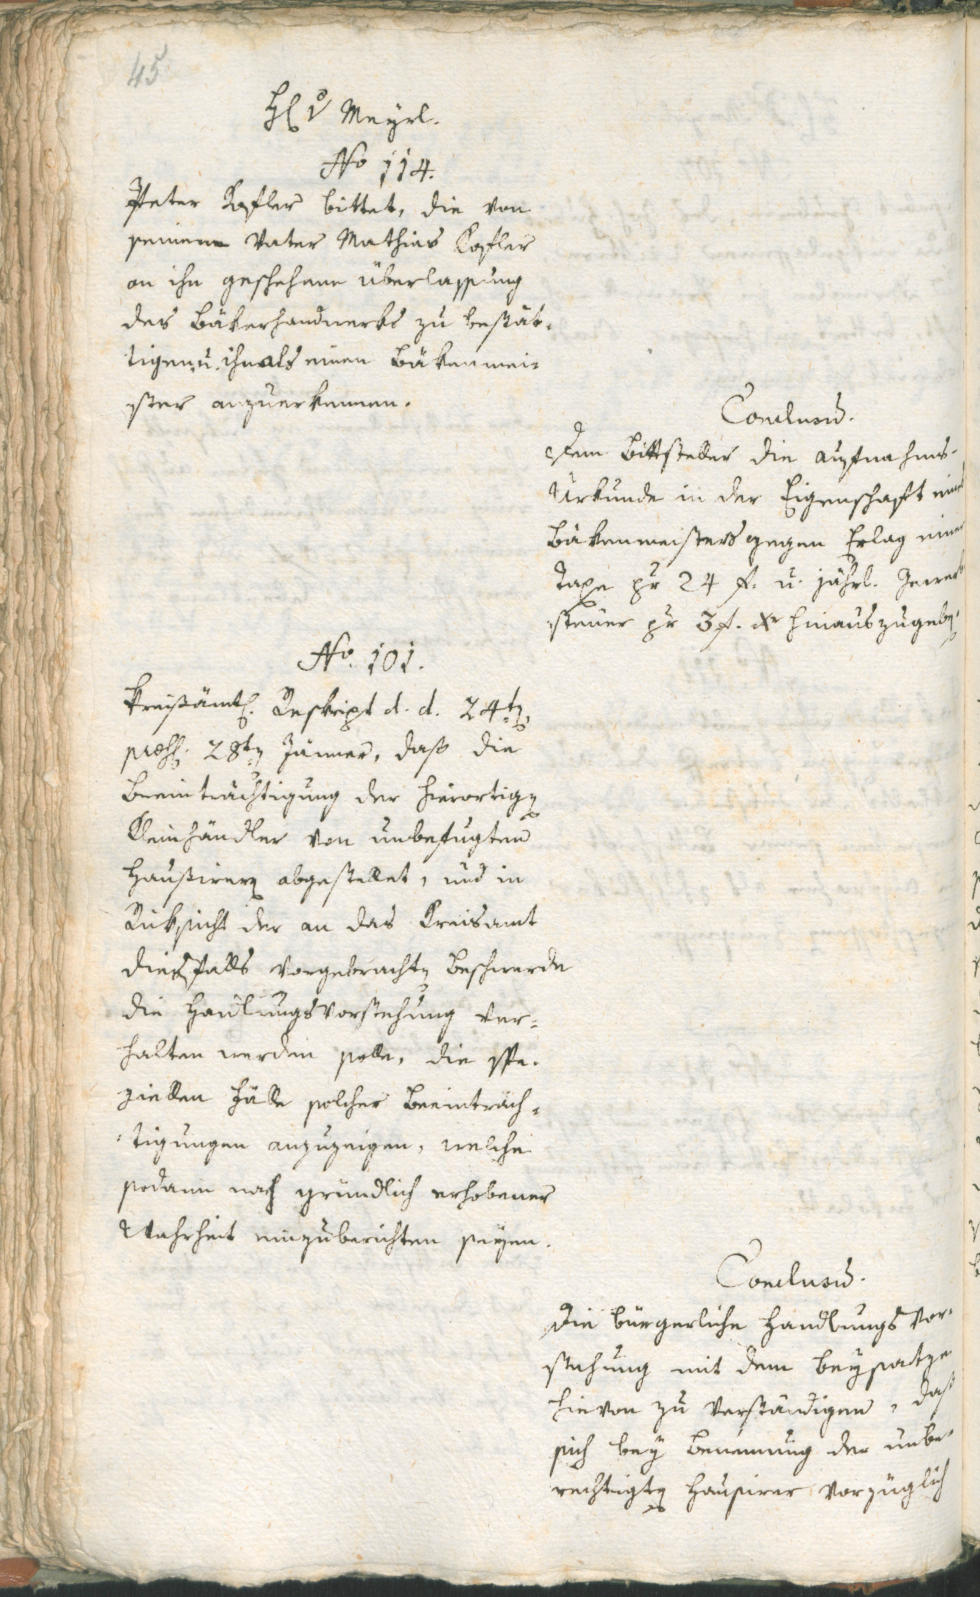 45
H v Meyrl.
No 114.
Peter Kofler bittet, die von
seinem Vater Mathias Kofler
an ihn geschehene überlassung
des Bäkerhandwerks zu bestät-
tigen, u. ihn als einen Bäkenmei-
ster anzuerkennen.
Conclusū.
Dem Bittsteller die aufnahms-
Urkunde in der Eigenschaft eines
Bäkenmeisters gegen Erlag einer
Taxe pr 24 f. u. jährl. Gewerb
steuer pr 3 f. xr hinauszugeben.
No. 101.
Kreisämtl. Reskript d. d. 24ten
28ten Jänner, daß die
Beeinträchtigung der hierortigen
Kleinhändler von unbefugten
Hausirern abgestellet, und in
Rüksicht der an das Kreisamt
diesfalls vorgebrachten Beschwerde
die Handlungsvorstehung ver-
halten werden solle, die spe-
ziellen Fälle solcher Beeinträch-
tigungen anzuzeigen, welche
sodann nach gründlich erhobener
Wahrheit einzuberichten seyen.
Conclusū.
Die bürgerliche Handlungs Vor-
stehung mit dem Beysatze
hievon zu verständigen, daß
sich bey Benennung der unbe-
rechtigten Hausirer vorzüglich